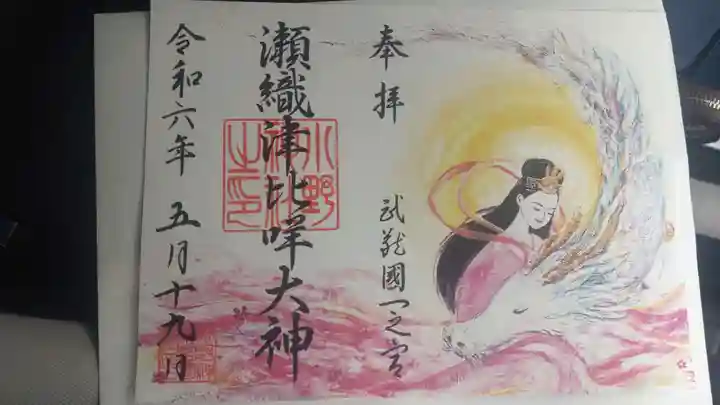 奉拝
武蔵國一之宮
瀬織津比咩大神
小野
神社
之印
令和六年 五月十九日